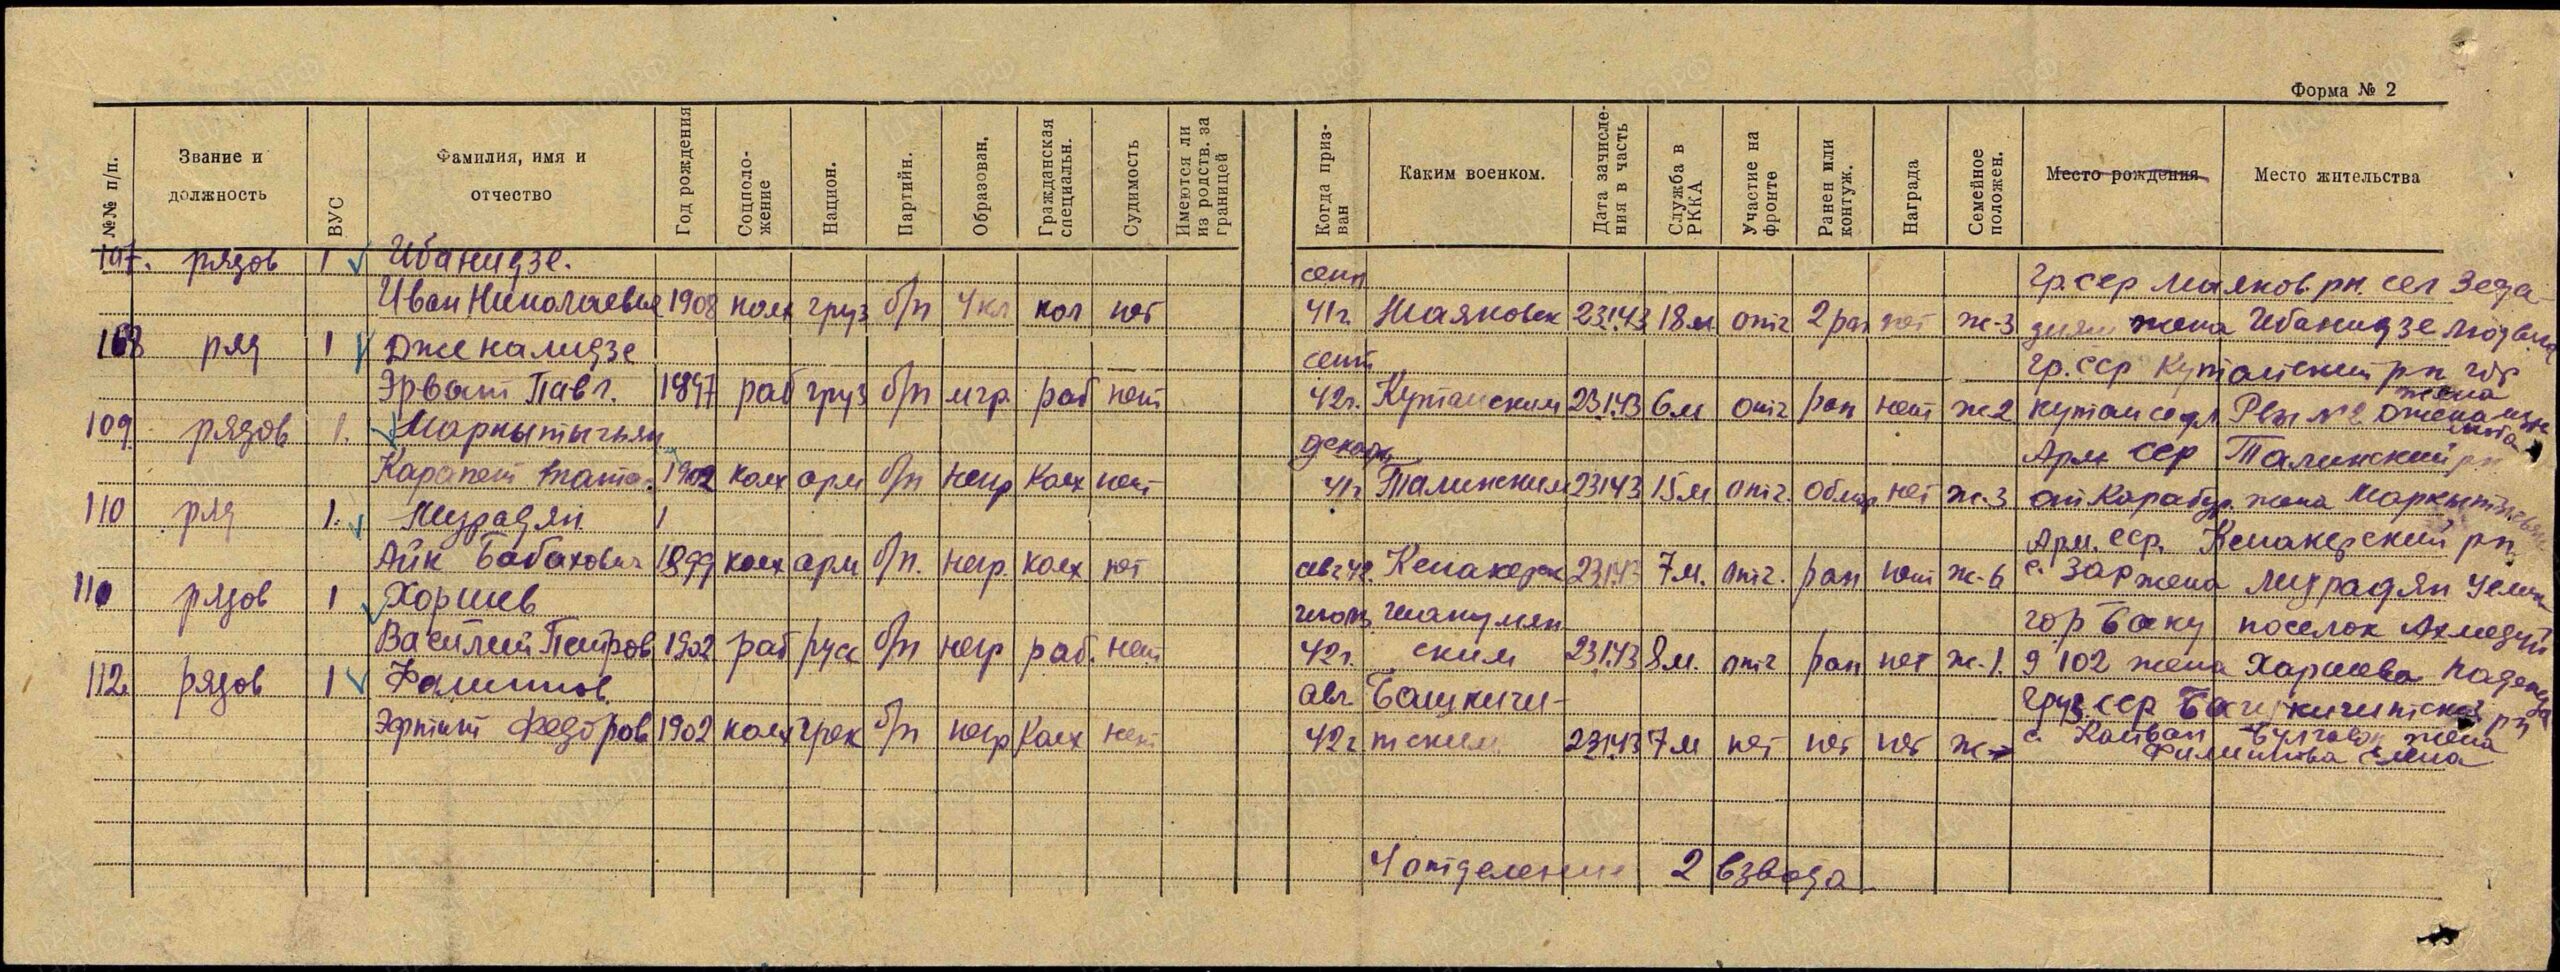 Форма № 2
№№ п/п. Звание и должность ВУС Фамилия, имя и отчество Год рождения Соцположение Национ. Партийн. Образован. Гражданская специальн. Судимость Имеются ли из родств. за границей Когда призван Каким военком. Дата зачисления в часть Служба в РККА Участие на фронте Ранен или контуж. Награда Семейное положен. Место рождения Место жительства
107. рядов 1 Ибанидзе. сент Гр.сср Маяков рн. сел Зеда-
Иван Николаевич 1908 колх груз б/п 4 кл кол нет 41г. Маяковск 23.1.43 18 м отг 2 ран нет ж-3 жена Ибанидзе
108 ряд 1 Дженалидзе сент Гр.сср Кутаиский рн гор
Эрваст Павл. 1897 раб груз б/п мгр. раб нет 42г. Кутаиским 23.1.43 6 м отг ран нет ж2 жена
109 рядов 1. Маркытычьян декабр Арм сср Талинский рн
Карапет 1902 колх арм б/п негр Колх нет 41г Талинским 23.1.43 15 м отг. нет ж-3 жена
110 ряд 1. Мурадян Арм. сср. Кенакерский рн
Айк Бабахович 1899 колх арм б/п. негр. колх нет авг 42. Кенакерск 23.1.43 7 м. отг. ран нет ж-6 с. Зар жена Мурадян
110 рядов 1 Хоршев гор Баку поселок
Василий Петров 1902 раб русс б/п негр раб. нет 42г. ским 23.1.43 8 м. отг ран нет ж-1. д 102 жена Харшева Надежда
112. рядов 1 Фалиппов авг Башкичи- Груз сср Башкичитский рн
Федоров 1902 колх грек б/п негр Колх нет 42г тским 23.1.43 7 м нет нет нет с. жена
Филиппова Елена
4 отделение 2 взвода